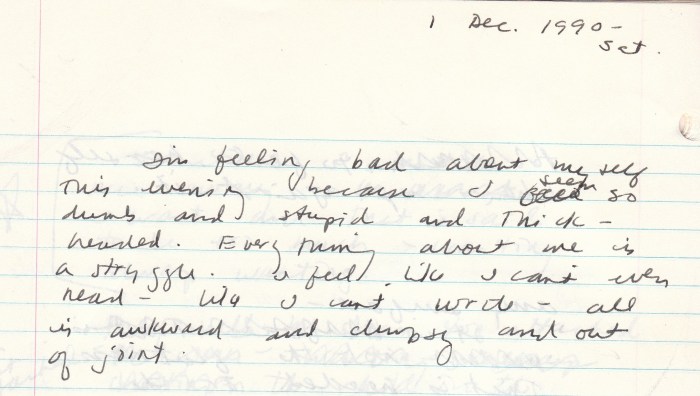 1 Dec. 1990 -
Sat.
I'm feeling bad about myself
this evening because I seem so
dumb and stupid and thick -
headed. Everything about me is
a struggle. I feel like I can't even
read - like I can't write - all
is awkward and clumpsy and out
of joint.